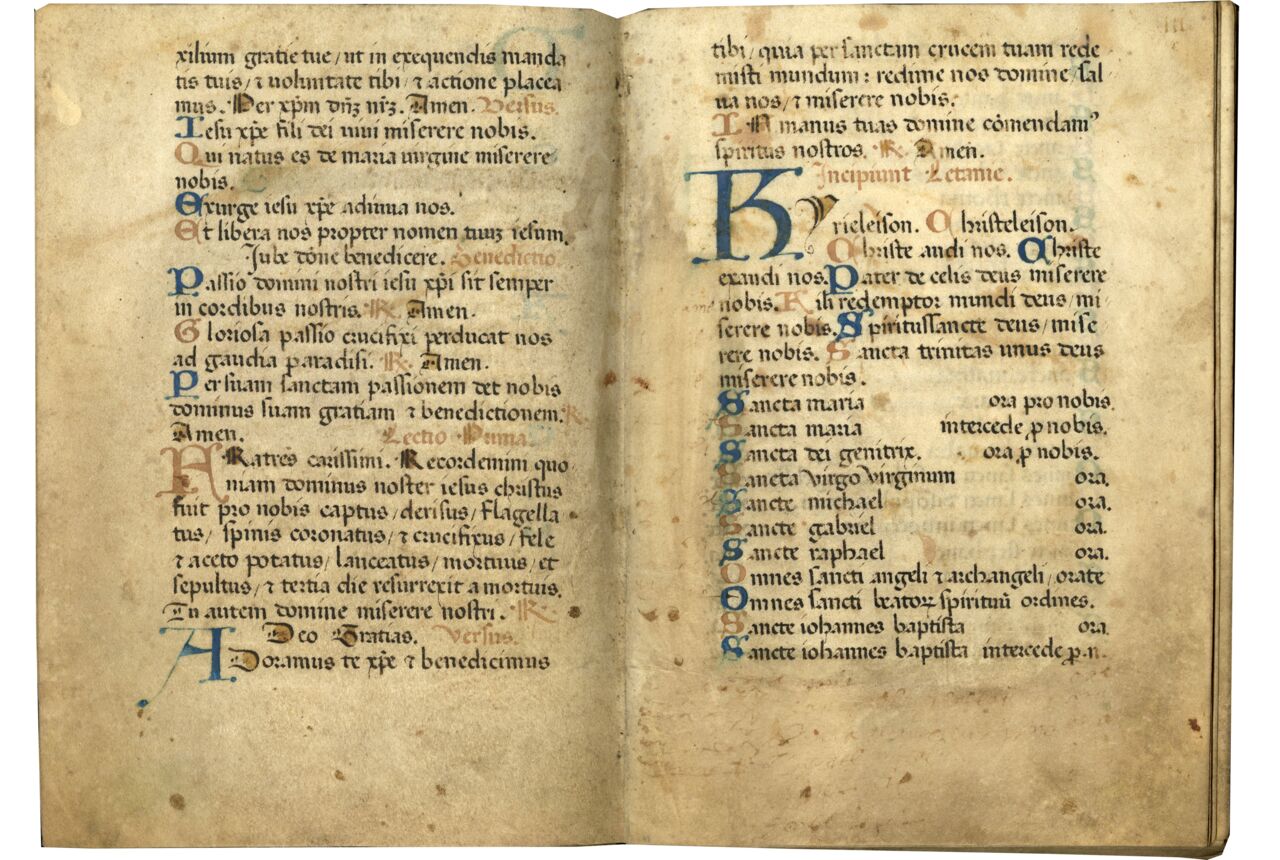 xilium gratie tue / ut in exequendis manda
tis tuis / ⁊ voluntate tibi / ⁊ actione placea
mus. Per xp̄m dn̄ꝫ nr̄ꝫ. Amen. Versus.
Iesu xp̄e fili dei vivi miserere nobis.
Qui natus es de maria virgine miserere
nobis.
Exurge iesu xp̄e adiuva nos.
Et libera nos propter nomen tuuꝫ iesum.
Jube dōne benedicere. Benedictio.
Passio domini nostri iesu xp̄i sit semper
in cordibus nostris. R. Amen.
Gloriosa passio crucifixi perducat nos
ad gaudia paradisi. R. Amen.
Per suam sanctam passionem det nobis
dominus suam gratiam ⁊ benedictionem. R.
Amen. Lectio Prima.
FRatres carissimi. Recordemini quo
niam dominus noster iesus christus
fuit pro nobis captus / derisus / flagella
tus / spinis coronatus / ⁊ crucifixus / fele
⁊ aceto potatus / lanceatus / mortuus / et
sepultus / ⁊ tertia die resurrexit a mortuis.
Tu autem domine miserere nostri. R.
Deo Gratias. Versus.
ADoramus te xp̄e ⁊ benedicimus
tibi / quia per sanctam crucem tuam rede
misti mundum : redime nos domine / sal
va nos / ⁊ miserere nobis.
IN manus tuas domine cōmendamꝰ
spiritus nostros. R. Amen.
Incipiunt Letanie.
Kyrieleison. Christeleison.
Christe audi nos. Christe
exaudi nos. Pater de celis deus miserere
nobis. Fili redemptor mundi deus / mi
serere nobis. Spiritussancte deus / mise
rere nobis. Sancta trinitas unus deus
miserere nobis.
Sancta maria ora pro nobis.
Sancta maria intercede ꝓ nobis.
Sancta dei genitrix. ora ꝓ nobis.
Sancta virgo virginum ora.
Sancte michael ora.
Sancte gabriel ora.
Sancte raphael ora.
Omnes sancti angeli ⁊ archangeli / orate
Omnes sancti beatoꝝ spirituū ordines.
Sancte iohannes baptista ora.
Sancte iohannes baptista intercede ꝓ.n.